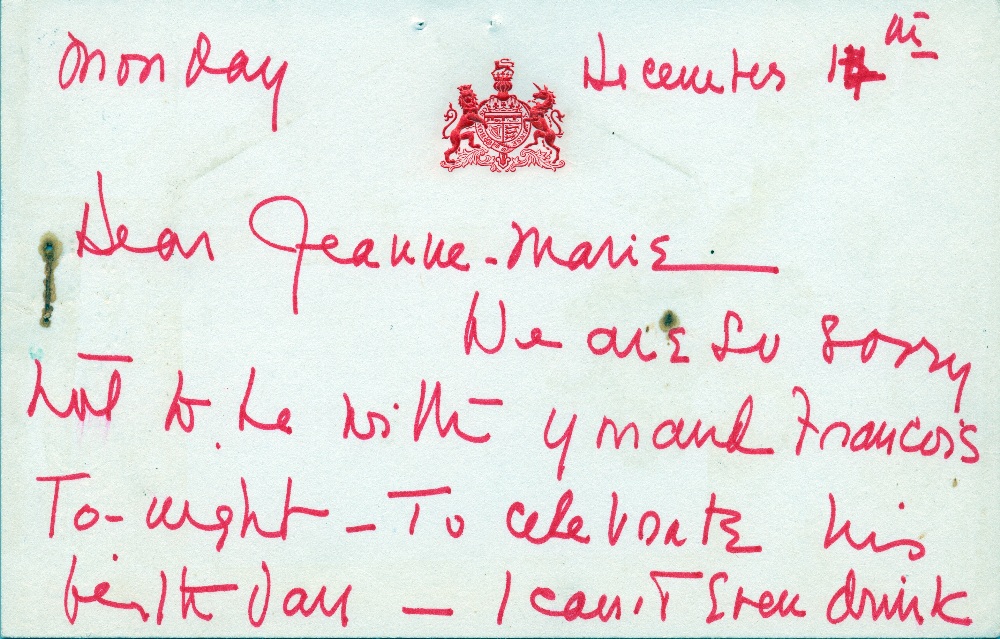 Monday December 14th
Dear Jeanne-Marie
We are so sorry
not to be with you and Francois
To-night - To celebrate his
birthday - I can't Even drink